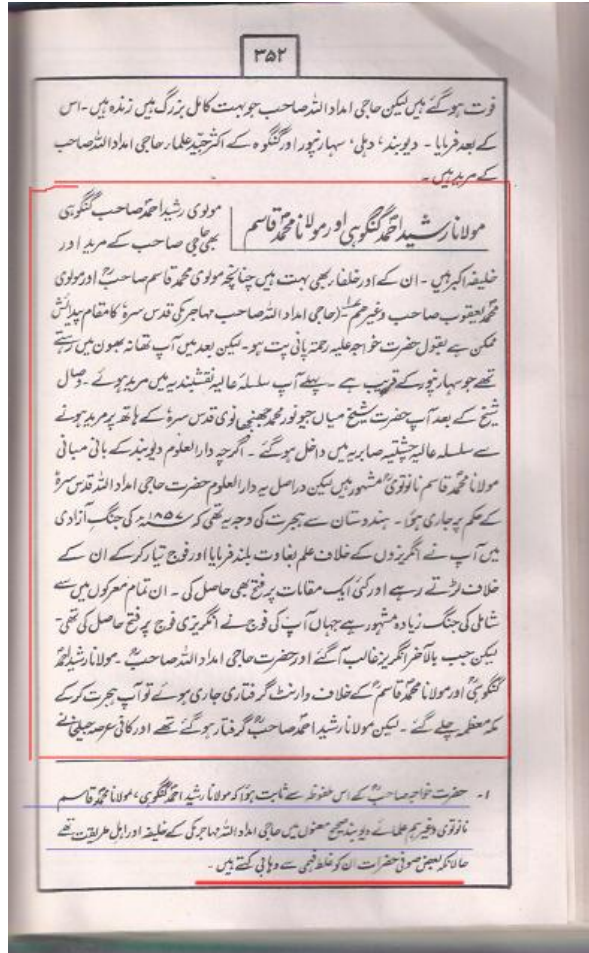 ۳۵۲
فوت ہو گئے ہیں لیکن حاجی امداد اللہ صاحب جو بہت کامل بزرگ ہیں زندہ ہیں۔ اس
کے بعد فرمایا۔ دیوبند، دہلی، سہارنپور اور گنگوہ کے اکثر جیّد علماء حاجی امداد اللہ صاحب
کے مرید ہیں۔
مولانا رشید احمدؒ گنگوہی اور مولانا محمدؒ قاسم
مولوی رشید احمدؒ صاحب گنگوہی
بھی حاجی صاحب کے مرید اور
خلیفہ اکبر ہیں۔ ان کے اور خلفاء بھی بہت ہیں چنانچہ مولوی محمد قاسم صاحبؒ اور مولوی
محمدؒ یعقوب صاحب وغیرھم۱؎ (حاجی امداد اللہ صاحب مہاجر مکی قدس سرہٗ کا مقام پیدائش
ممکن ہے بقول حضرت خواجہ علیہ رحمۃ پانی پت ہو۔ لیکن بعد میں آپ تھانہ بھون میں رہتے
تھے جو سہارنپور کے قریب ہے۔ پہلے آپ سلسلہ عالیہ نقشبندیہ میں مرید ہوئے۔ وصال
شیخ کے بعد آپ حضرت شیخ میاں جیو نور محمد جھنجھانوی قدس سرہٗ کے ہاتھ پر مرید ہونے
سے سلسلہ عالیہ چشتیہ صابریہ میں داخل ہو گئے۔ اگرچہ دارالعلوم دیوبند کے بانی مبانی
مولانا محمدؒ قاسم نانوتویؒ مشہور ہیں لیکن دراصل یہ دارالعلوم حضرت حاجی امداد اللہ قدس سرہٗ
کے حکم پر جاری ہوا۔ ہندوستان سے ہجرت کی وجہ یہ تھی کہ ۱۸۵۷ء کی جنگ آزادی
میں آپ نے انگریزوں کے خلاف علم بغاوت بلند فرمایا اور فوج تیار کر کے ان کے
خلاف لڑتے رہے اور کئی ایک مقامات پر فتح بھی حاصل کی۔ ان تمام معرکوں میں سے
شاملی کی جنگ زیادہ مشہور ہے جہاں آپ کی فوج نے انگریزی فوج پر فتح حاصل کی تھی۔
لیکن جب بالآخر انگریز غالب آگئے اور حضرت حاجی امداد اللہ صاحبؒ۔ مولانا رشید احمدؒ
گنگوہیؒ اور مولانا محمدؒ قاسمؒ کے خلاف وارنٹ گرفتاری جاری ہوئے تو آپ ہجرت کر کے
مکہ معظمہ چلے گئے۔ لیکن مولانا رشید احمدؒ صاحبؒ گرفتار ہو گئے تھے اور کافی عرصہ جیلخانے
۱۔ حضرت خواجہ صاحبؒ کے اس ملفوظ سے ثابت ہوا کہ مولانا رشید احمدؒ گنگوہی، مولانا محمدؒ قاسم
نانوتوی وغیرہم علمائے دیوبند صحیح معنوں میں حاجی امداد اللہ مہاجر مکی کے خلیفہ اور اہل طریقت تھے
حالانکہ بعض صوفی حضرات ان کو غلط فہمی سے وہابی کہتے ہیں۔